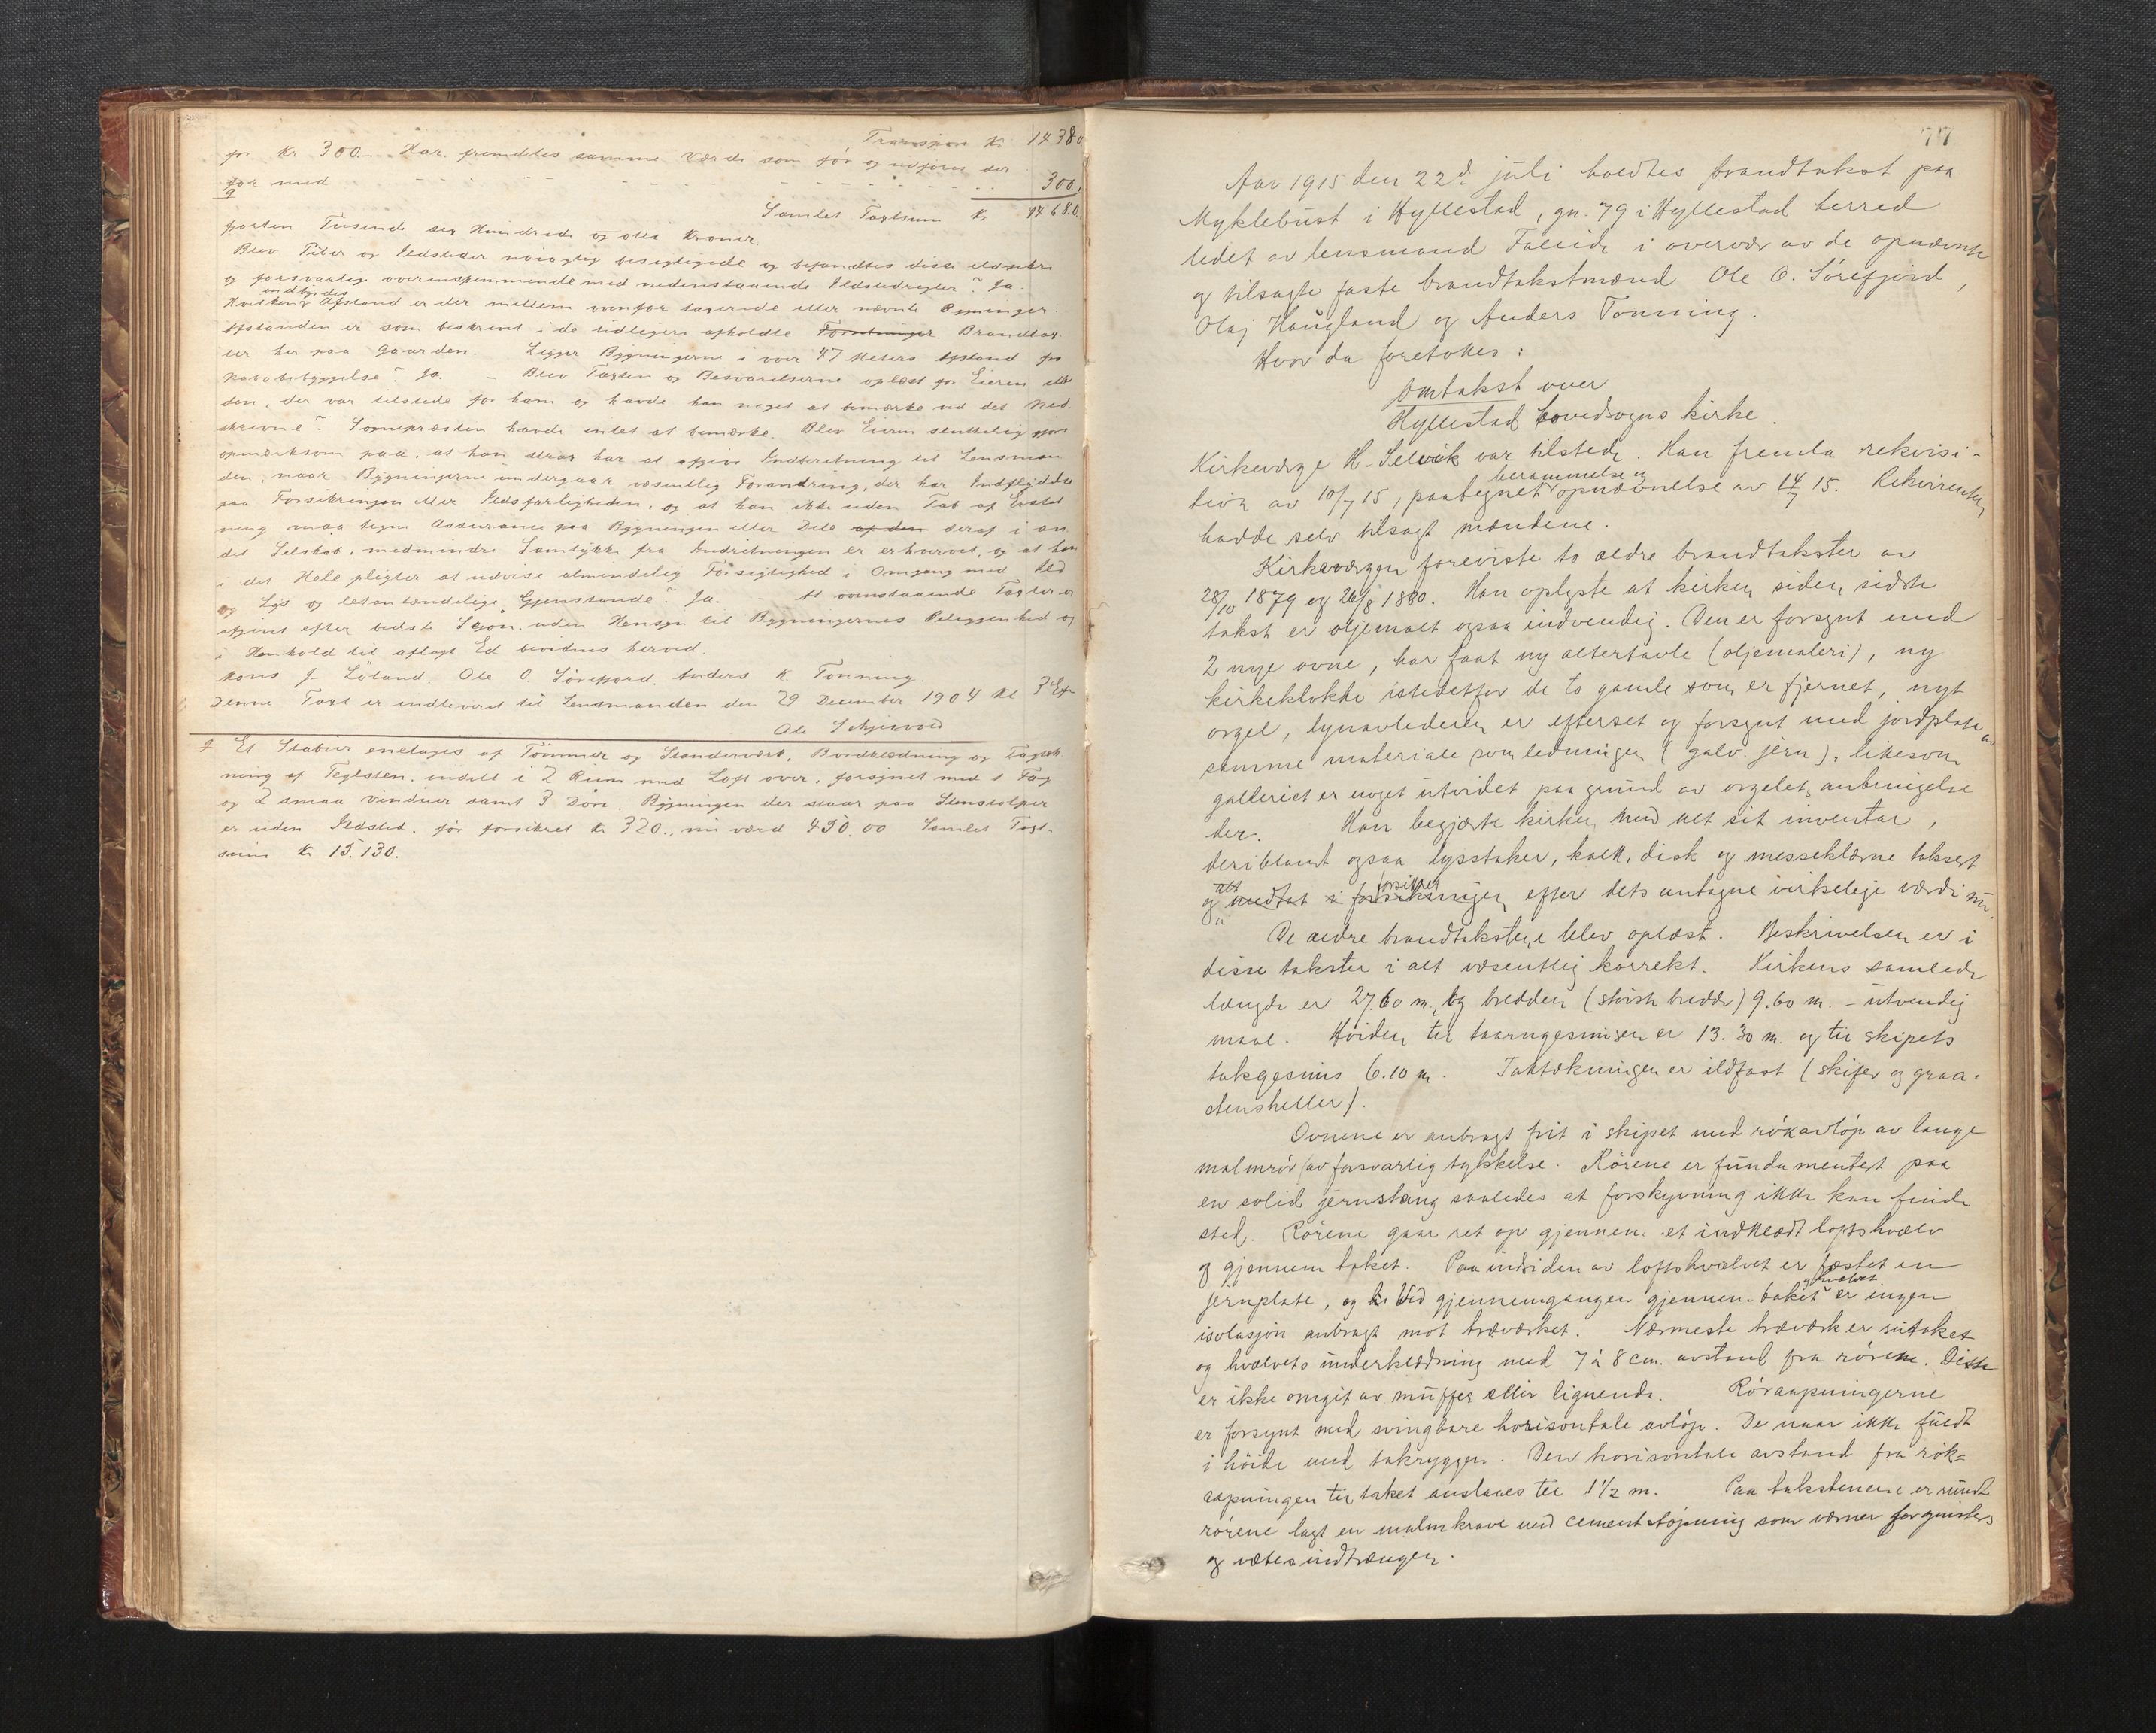 Transport Kr. 14380
for Kr 300.- Har fremdeles samme Værdi som før og udføres der
for med - - - - - - - - - - 300,
Samlet Taxtsum Kr 14680.
fjorten Tusinde sex Hundrede og otti Kroner
Blev Piber og Ildsteder nøiagtig besigtigede og befandtes disse ildsikre
og forsvarlig overensstemmende med nedenstaaende Ildstedregler? Ja.
indbyrdes
Hvilken Afstand er der mellem ovenfor taxerede eller nævnte Bygninger.
Afstanden er som beskrevet i de tidligere afholdte Forretninger Brandtax-
ter her paa Gaarden. Ligger Bygningerne i over 47 Meters Afstand fra
Nabobebyggelse? Ja. - Blev Taxten og Besvarelserne oplæst for Eieren eller
den, der var tilstede for ham og havde han noget at bemærke ved det Ned-
skrevne? Sognepræsten havde intet at bemærke. Blev Eieren sluttelig gjort
opmærksom paa, at han strax har at afgive Indberetning til Lensman
den, naar Bygningerne undergaar væsentlig Forandring, der har Indflydelse
paa Forsikringen eller Ildsfarligheden, og at han ikke uden Tab af Erstat
ning maa tegne Assurance paa Bygningen eller Dele af den deraf i an
det Selskab, medmindre Samtykke fra Indretningen er erhvervet, og at han
i det Hele pligter at udvise almindelig Forsigtighed i Omgang med Ild
og Lys og letantændelige Gjenstande? Ja. - At ovenstaaende Taxter er
afgivet efter bedste Skjøn, uden Hensyn til Bygningernes Beliggenhed og
i Henhold til aflagt Ed bevidnes herved.
Hans J Løland. Ole O. Sørefjord. Anders K. Tonning.
Denne Taxt er indleveret til Lensmanden den 29 December 1904 Kl 3 Eft
Ole Schjervold
Et Stabur enetages af Tømmer og Standerværk, Bordklædning og Tagtæk
ning af Teglsten, indelt i 2 Rum med Loft over, forsynet med 1 Fag
og 2 smaa Vinduer samt 3 Døre. Bygningen der staar paa Stenstolper
er uden Ildsted. før forsikret Kr 320., nu værd 450.00 Samlet Taxt-
sum Kr 15.130.
77
Aar 1915 den 22d. juli holdtes brandtakst paa
Myklebust i Hyllestad, gn. 79 i Hyllestad herred
ledet av lensmand Faleide i overvær av de opnævnte
og tilsagte faste brandtakstmænd Ole O. Sørefjord,
Olaj Haugland og Anders Tonning.
Hvor da foretokes:
Omtakst over
Hyllestad hovedsogns kirke.
Kirkeverge H. Selvik var tilstede. Han fremla rekvisi-
berammelse og
tion av 10/7 15, paategnet opnævnelse av 14/7 15. Rekvirenten
hadde selv tilsagt mændene.
Kirkevergen foreviste to ældre brandtakster av
28/10 1879 og 26/8 1880. Han oplyste at kirken siden sidste
takst er oljemalt ogsaa indvendig. Den er forsynt med
2 nye ovne, har faat ny altertavle (oljemaleri), ny
kirkeklokke istedetfor de to gamle som er fjernet, nyt
orgel, lynavlederen er efterset og forsynt med jordplate av
samme materiale som ledningen (galv. jern), likesom
galleriet er noget utvidet paa grund av orgelets anbringelse
der. Han begjærte kirken med alt sit inventar,
deriblandt ogsaa lysstaker, kalk, disk og messeklærne taksert
alt forsikret
og medtat i forsikringen efter dets antagne virkelige værdi nu.
De ældre brandtakster blev oplæst. Beskrivelsen er i
disse takster i alt væsentlig korrekt. Kirkens samlede
længde er 27.60 m, og bredden (største bredde) 9.60 m. - utvendig
maal. Høiden til taarngesimsen er 13.30 m. og til skipets
takgesims 6.10 m. Taktækningen er ildfast (skifer og graa-
stensheller).
Ovnene er anbragt frit i skipet med røkavløp av lange
malmrør (av forsvarlig tykkelse. Rørene er fundamentert paa
en solid jernstang saaledes at forskyvning ikke kan finde
sted. Rørene gaar ret op gjennem et indklædt loftshvælv
og gjennem taket. Paa indsiden av loftshvælvet er fæstet en
og hvælvet
jernplate, og Ved gjennemgangen gjennem taket er ingen
isolasjon anbragt mot træværket. Nærmeste træværk er sutaket
og hvælvets underklædning med 7 à 8 cm. avstand fra rørene. Disse
er ikke omgit av muffer eller lignende. Røraapningerne
er forsynt med svingbare horisontale avløp. De naar ikke fuldt
i høide med takryggen. Den horisontale avstand fra røk-
aapningen til taket anslaaes til 1 1/2 m. Paa takstenene er rundt
rørene lagt en malmkrave med cementstøpning som værner for gnister
og vætes indtrængen.